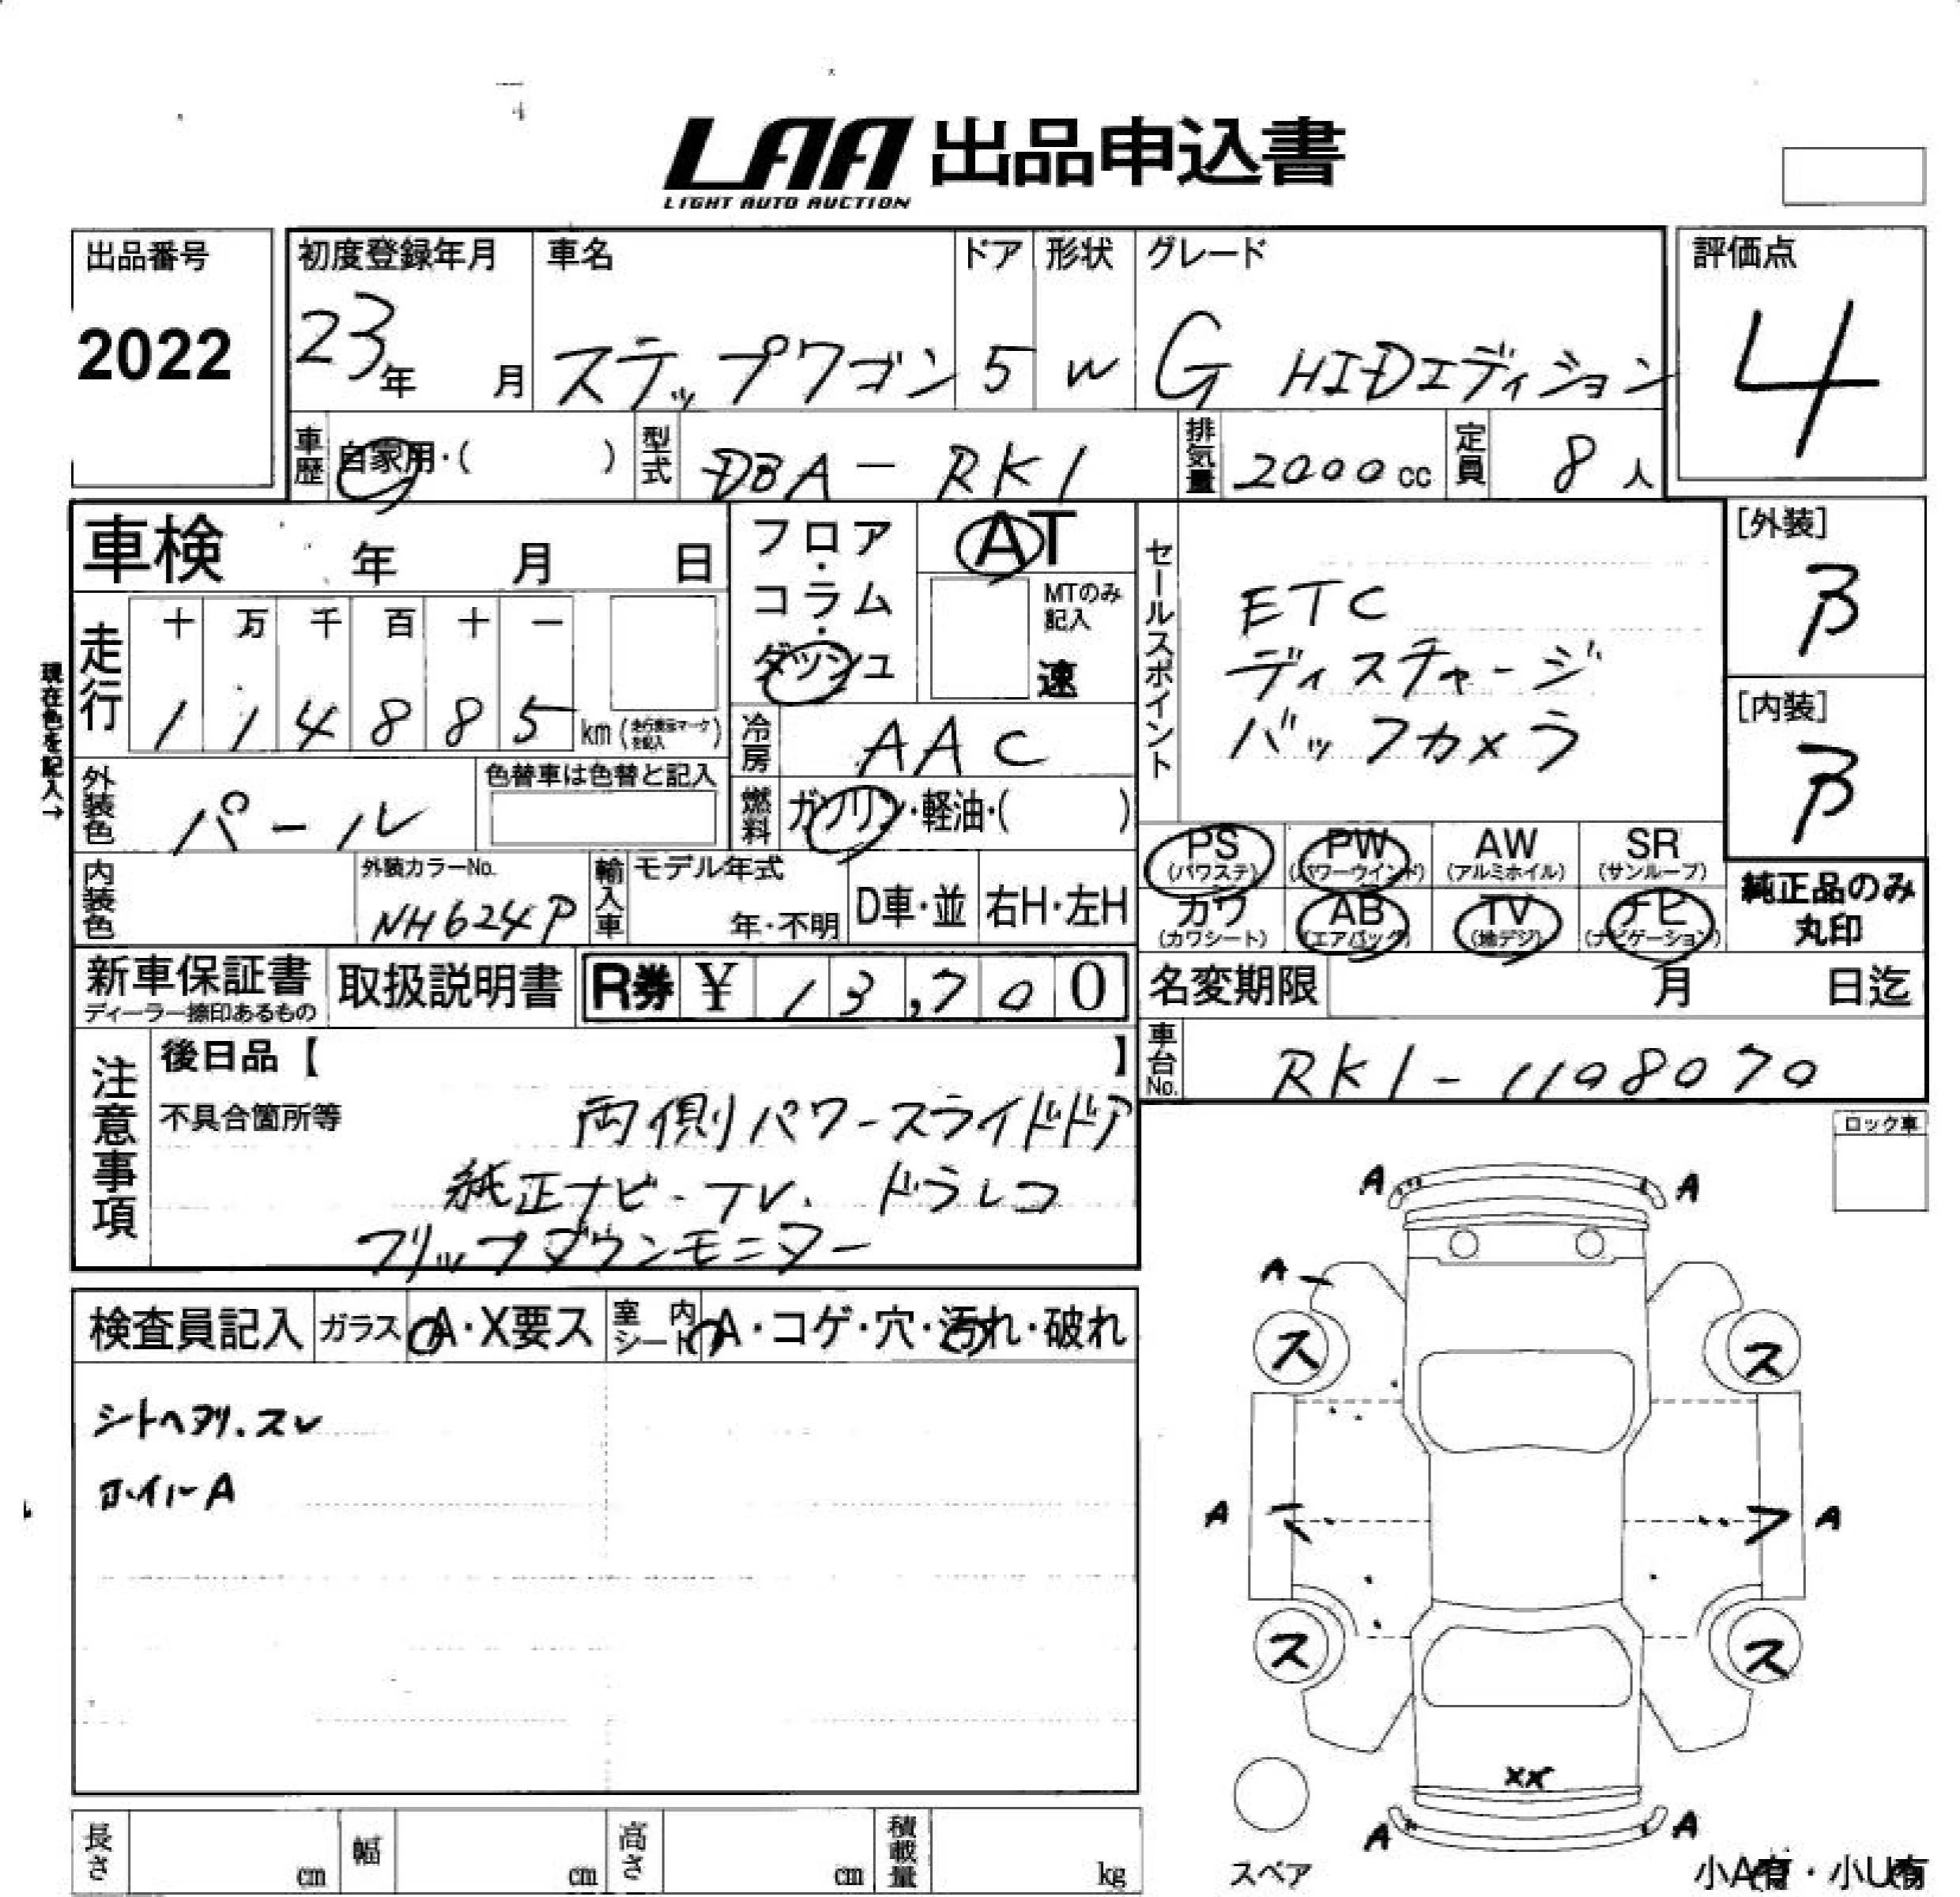 LAA 出品申込書
LIGHT AUTO AUCTION
出品番号
2022
初度登録年月 車名 ドア 形状 グレード
23年 月 ステップワゴン 5 W G HIDエディション
評価点
4
車歴 自家用・( ) 型式 DBA－RK1 排気量 2000cc 定員 8人
車検 年 月 日
フロア・コラム・ダッシュ
AT
MTのみ記入
速
セールスポイント
ETC
ディスチャージ
バックカメラ
[外装]
B
[内装]
B
現在色を記入→
走行 十 万 千 百 十 一
1 1 4 8 8 5 km (走行表示マークを記入)
冷房 AAC
外装色 パール 色替車は色替と記入
燃料 ガソリン・軽油・( )
PS (パワステ) PW (パワーウインド) AW (アルミホイル) SR (サンルーフ)
カワ (カワシート) AB (エアバック) TV (地デジ) ナビ (ナビゲーション)
純正品のみ
丸印
内装色 外装カラーNo. NH624P 輸入車 モデル年式 年・不明 D車・並 右H・左H
新車保証書 取扱説明書 R券 ¥ 13,700
ディーラー捺印あるもの
名変期限 月 日迄
車台No. RK1-1108070
注意事項
後日品【 】
不具合箇所等 両側パワースライドドア
純正ナビ・TV. ドラレコ
フリップダウンモニター
ロック車
検査員記入 ガラス A・X要ス 室内シート A・コゲ・穴・汚れ・破れ
シートヘタリ.スレ
ホイルA
A A
A
ス ス
A A
ス ス
XX
A A
スペア
小A有・小U有
長さ cm 幅 cm 高さ cm 積載量 kg